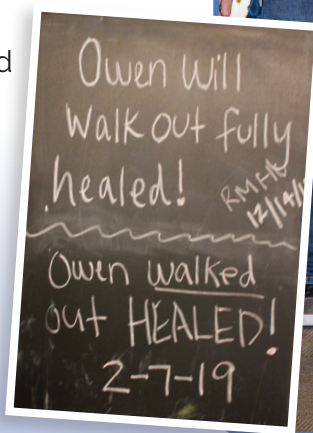 d
Owen Will
Walk out fully
healed!
Owen walked
out HEALED!
2-7-19